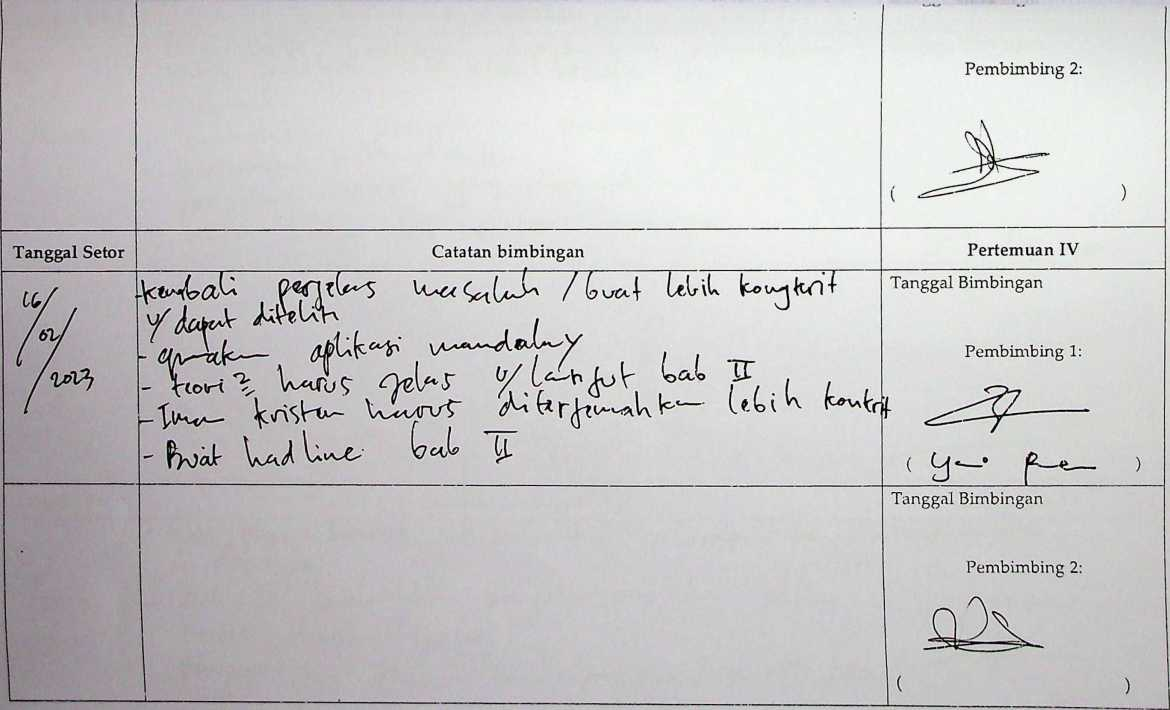 Pembimbing 2:
( )
Tanggal Setor Catatan bimbingan Pertemuan IV
16/02/2023
- kembali perjelas masalah / buat lebih kongkrit
u/ dapat diteliti
- gunakan aplikasi mandalay
- teori2 harus jelas u/ lanjut bab II
- Iman kristen harus diterjemahkan lebih konkrit
- Buat hadline bab II
Tanggal Bimbingan
Pembimbing 1:
( )
Tanggal Bimbingan
Pembimbing 2:
( )